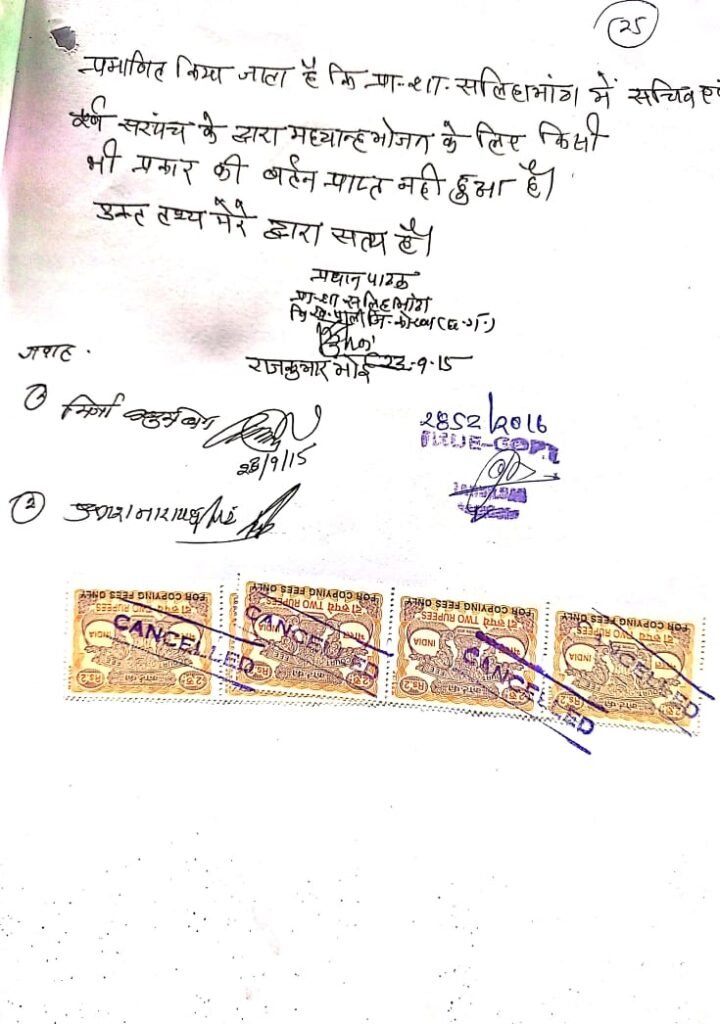 25
प्रमाणित किया जाता है कि प्रा-शा-सलिहाभांठा में सचिव एवं
पूर्व सरपंच के द्वारा मध्यान्ह भोजन के लिए किसी
भी प्रकार की बर्तन प्राप्त नही हुआ है।
उक्त तथ्य मेरे द्वारा सत्य है।
प्रधान पाठक
प्रा-शा सलिहाभांठा
वि.ख. पाली जि.-कोरबा (छ.ग.)
राजकुमार भोई 23-9-15
गवाह .
① मिर्जा
23/9/15
②
2852/2016
TRUE-COPY
FOR COPYING FEES ONLY FOR COPYING FEES ONLY FOR COPYING FEES ONLY FOR COPYING FEES ONLY
दो रुपय TWO RUPEES दो रुपय TWO RUPEES दो रुपय TWO RUPEES दो रुपय TWO RUPEES
INDIA INDIA INDIA INDIA
CANCELLED CANCELLED CANCELLED CANCELLED